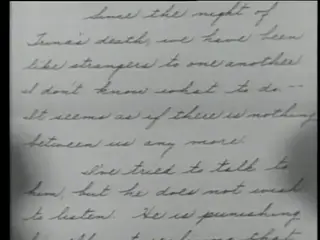 Since the night of
Trina's death, we have been
like strangers to one another
I don't know what to do --
It seems as if there is nothing
between us any more.
I've tried to talk to
him, but he does not wish
to listen. He is punishing